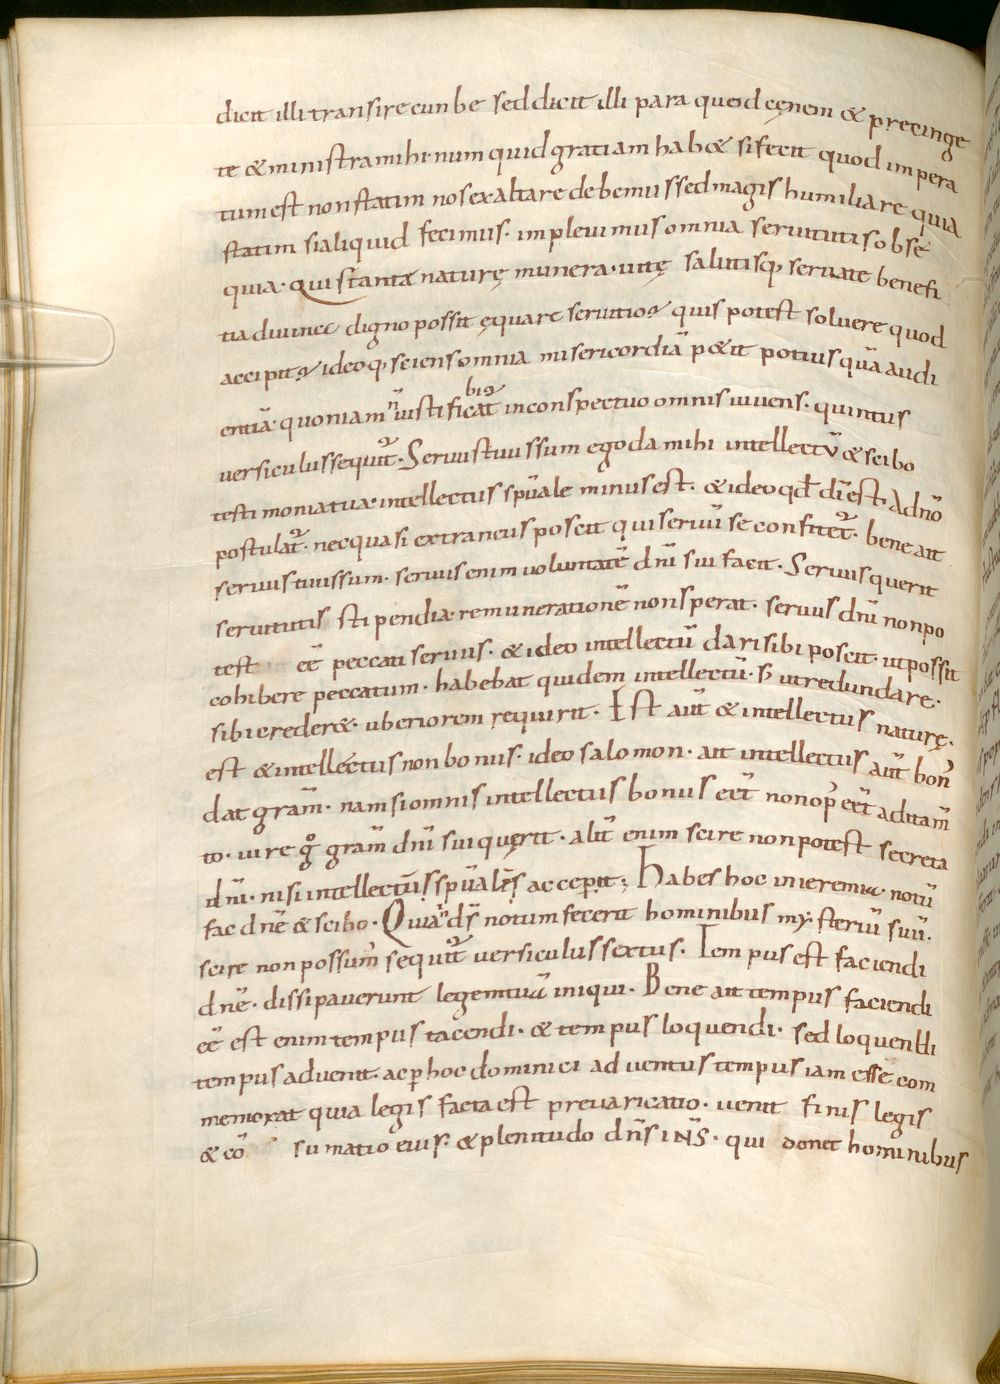 dicit illi transire cunbe sed dicit illi para quod cęnem & precinge
te & ministra mihi· num quid gratiam hab& si fecit quod impera
tum est non statim nos exaltare debemus sed magis humiliare quia
statim si aliquid fecimus· impleuimus omnia seruituti sobse
quia· qui stantæ naturę munera· uitę salutisq; seruate benefi
tia diuinec digno possit ęquare seruitio? quis potest soluere quod
accipit? ideoq; sciens omnia misericordiā p&it potius quā audi
entiā· quoniam n̄ iustificabit̄ in conspectuo omnis uiuens· quintus
uersiculus sequit̄· Seruus tuus sum ego da mihi intellectū & scibo
testimonia tua· intellectus sp̄uale minus est· & ideo qd̄ dīest· Adnō
postulat̄· nec quasi extraneus poscit qui seruū se confitet̄· bene ait
seruus tuus sum· seruus enim uoluntatē dnī sui facit· Seruus querit
seruitutis stipendia· remunerationē non sperat· seruus dnī non po
test eē peccati seruus· & ideo intellectū dari sibi poscit· ut possit
cohibere peccatum· habebat quidem intellectū· s; ut redundare·
sibi creder&· uberiorem requirit· Est aūt & intellectus naturę·
est & intellectus non bonus· ideo salomon· ait intellectus aūt bon̄
dat grām̄· nam si omnis intellectus bonus eēt non op̄ eēt aditam̄
to· uire g° grām̄ dnī sui quęrit· alit̄ enim scire non potest secreta
dnī· nisi intellectūs sp̄ualēs acceperit; Habes hoc in ieremiæ· notū
fac dnē & scibo· Quia n̄ ds̄ notum fecerit hominibus my·steriū suū·
scire non possum̄ sequit̄ uersiculus sextus· Tempus est faciendi
dnē· dissipauerunt legem tuā iniqui· Bene ait tempus faciendi
eē est enim tempus tacendi· & tempus loquendi· sed loquendi
tempus aduenit· ac p hoc dominici aduentus tempus iam esse com
memorat quia legis facta est preuaricatio· uenit finis legis
& cō sumatio eius· & plenitudo dn̄s ihs̄· qui donet hominibus